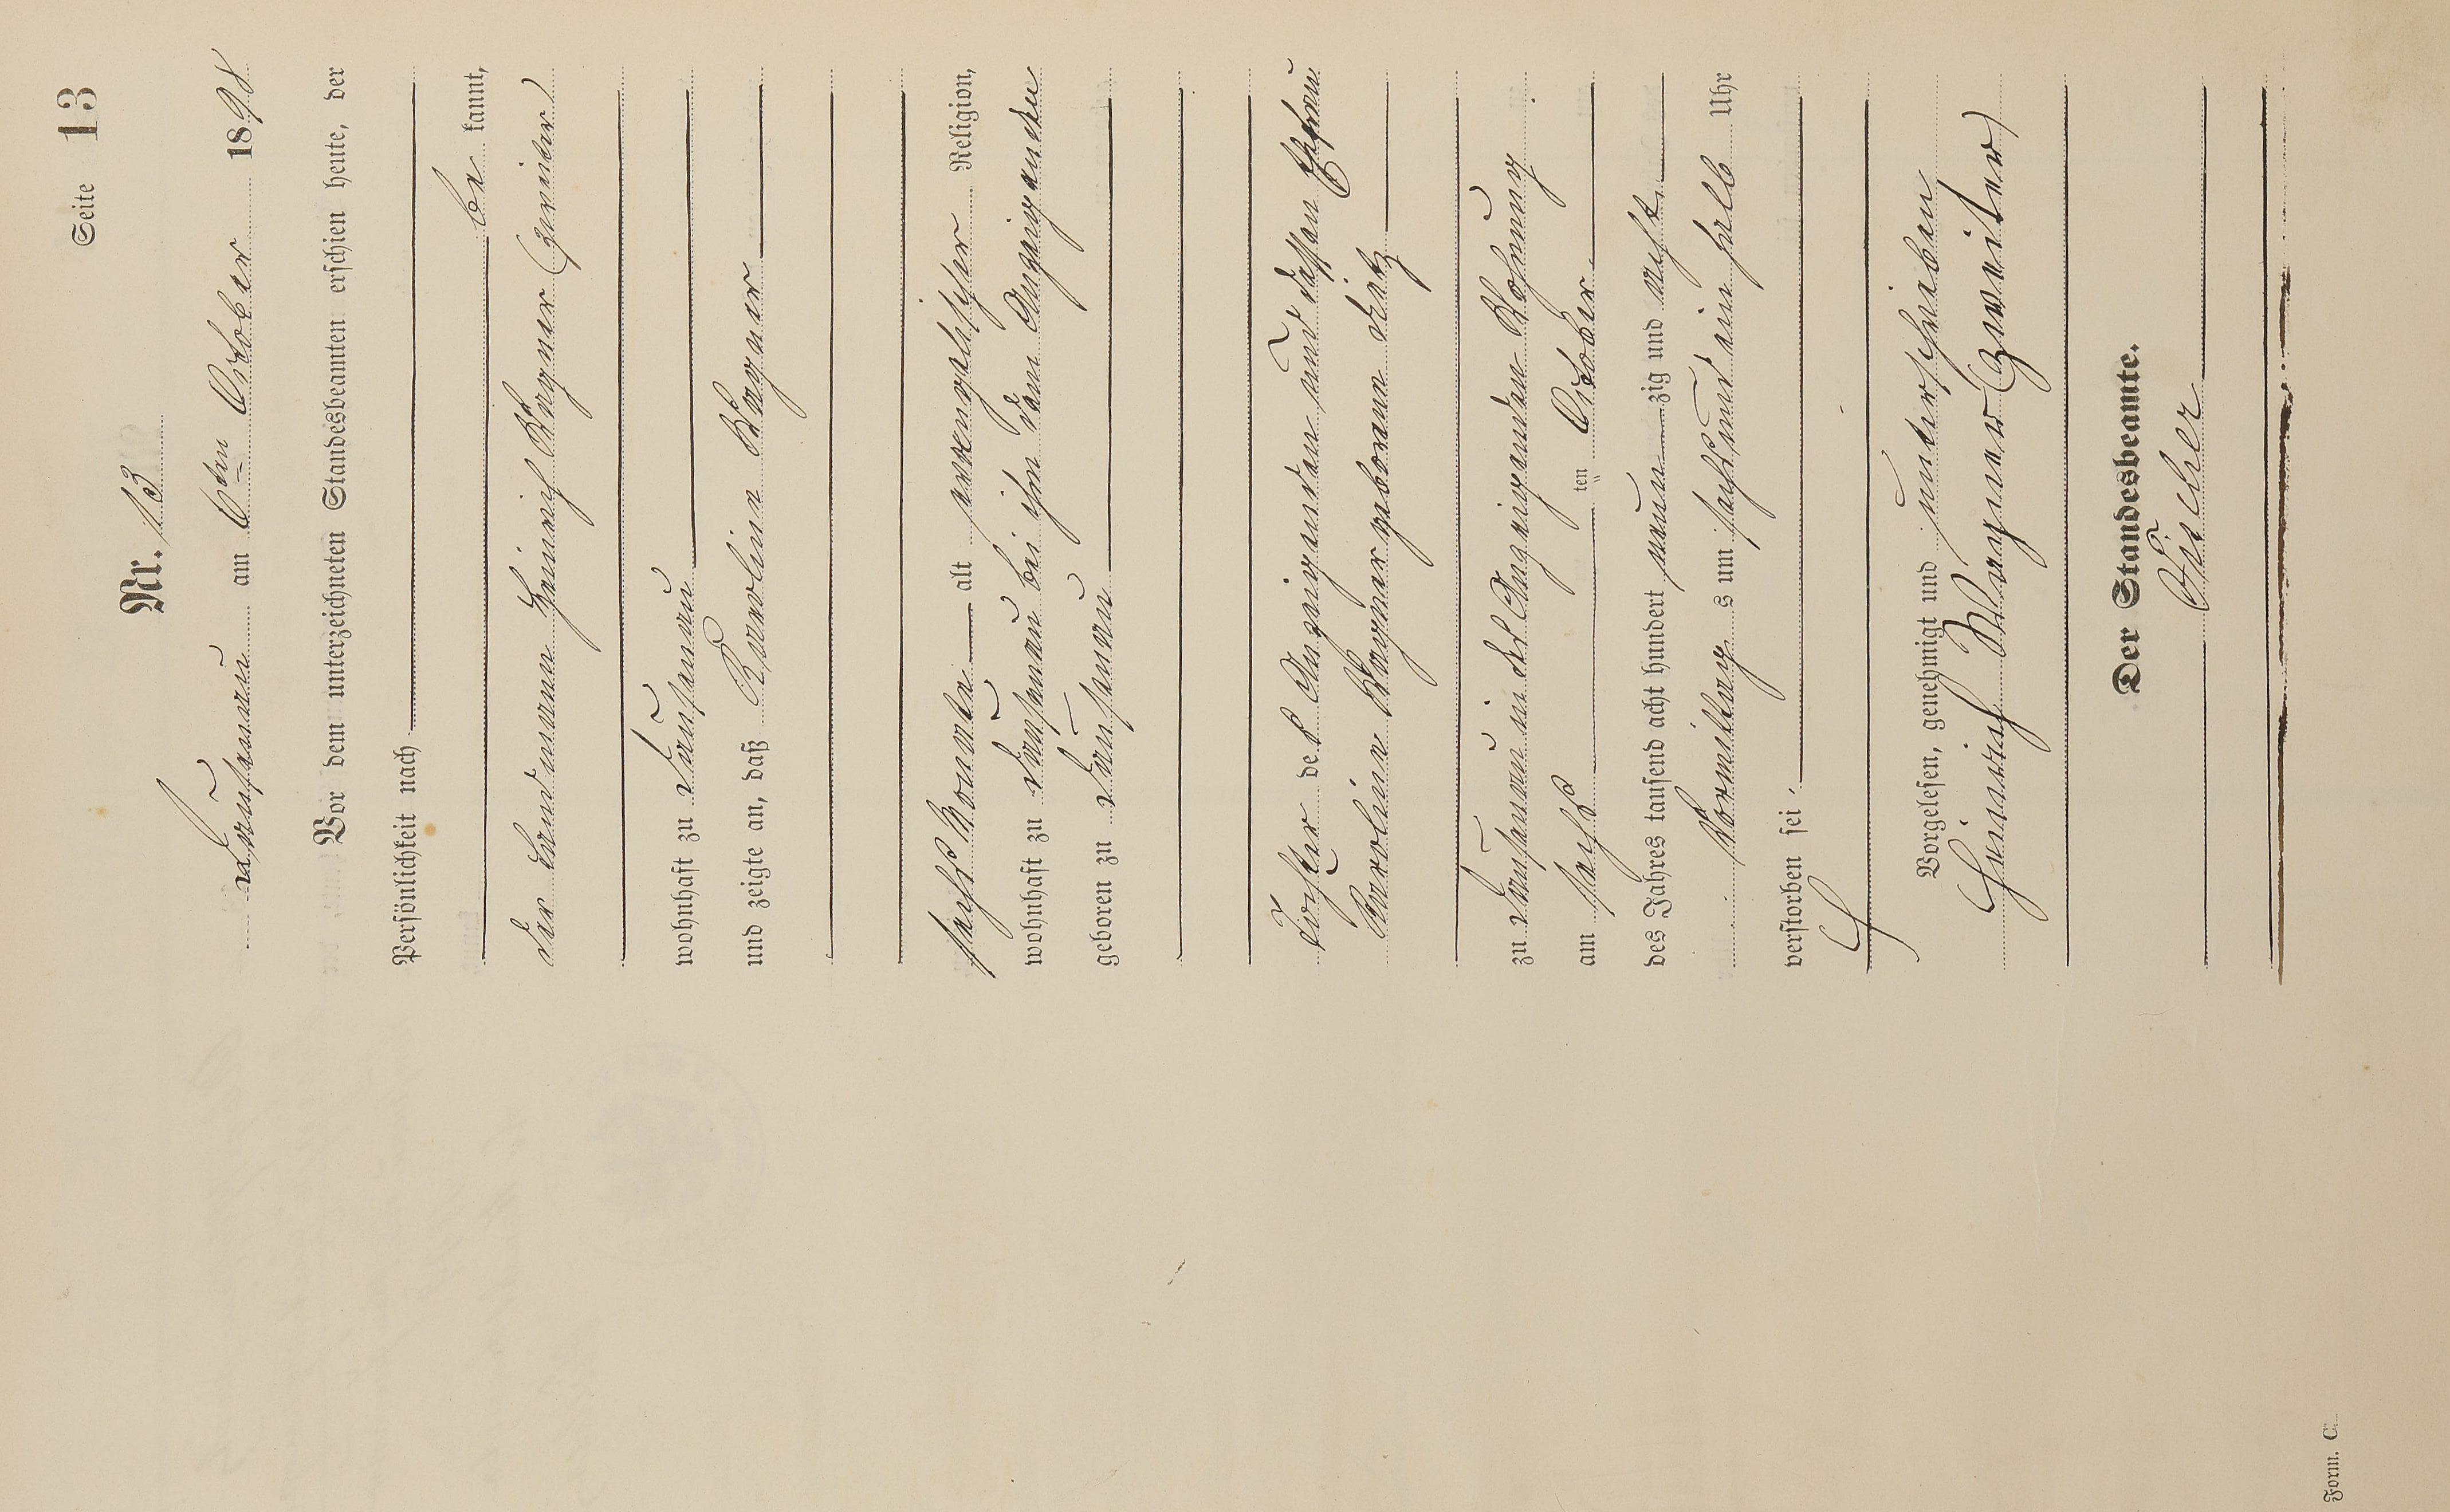 Seite 13
Nr. 13
Dausenau am 6ten October 1898
Vor dem unterzeichneten Standesbeamten erschien heute, der
Persönlichkeit nach
be kannt,
der Landmann Heinrich Wagner (zweiter)
wohnhaft zu Dausenau
und zeigte an, daß Karoline Wagner
sechs Monate alt evangelischer Religion,
wohnhaft zu Dausenau bei ihm dem Anzeigenden
geboren zu Dausenau
Tochter des Anzeigenden und dessen Ehefrau
Karoline Wagner geborene Dietz
zu Dausenau in des Anzeigenden Wohnung
am sechs ten October
des Jahres tausend acht hundert neun zig und acht
Vormittag s um sechs und ein halb Uhr
verstorben sei.
Vorgelesen, genehmigt und unterschrieben
Heinrich Wagner (Zweiter)
Der Standesbeamte.
Form. C.